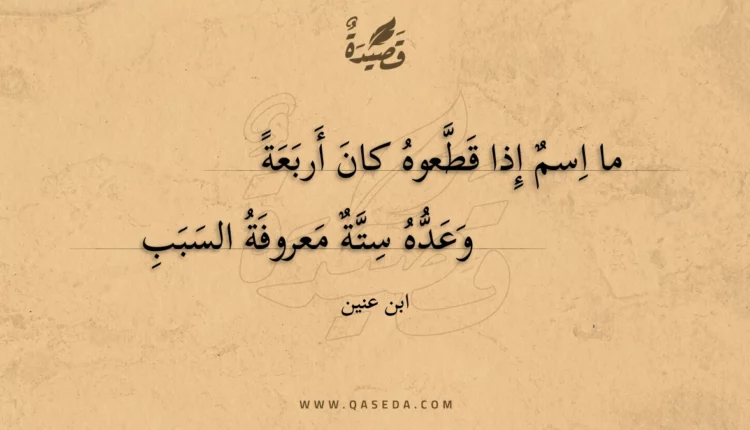 قَصِيدَةٌ
ما اِسمٌ إِذا قَطَّعوهُ كانَ أَربَعَةً
وَعَدُّهُ سِتَّةٌ مَعروفَةُ السَبَبِ
ابن عنين
WWW.QASEDA.COM